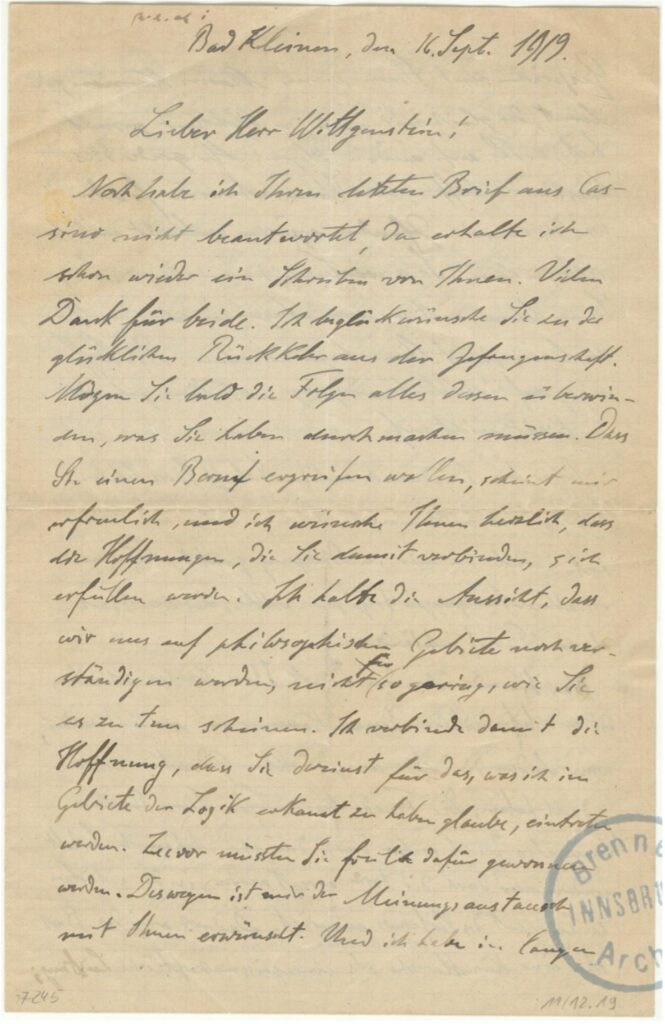 Bad Kleinen, den 16. Sept. 1919.
Lieber Herr Wittgenstein!
Noch habe ich Ihren letzten Brief aus Cas-
sino nicht beantwortet, da erhalte ich
schon wieder ein Schreiben von Ihnen. Vielen
Dank für beide. Ich beglückwünsche Sie zu der
glücklichen Rückkehr aus der Gefangenschaft.
Mögen Sie bald die Folgen alles dessen überwin-
den, was Sie haben durchmachen müssen. Dass
Sie einen Beruf ergreifen wollen, scheint mir
erfreulich, und ich wünsche Ihnen herzlich, dass
die Hoffnungen, die Sie damit verbinden, sich
erfüllen werden. Ich halte die Aussicht, dass
wir uns auf philosophischem Gebiete noch ver-
ständigen werden, nicht für so gering, wie Sie
es zu tun scheinen. Ich verbinde damit die
Hoffnung, dass Sie dereinst für das, was ich im
Gebiete der Logik erkannt zu haben glaube, eintreten
werden. Zuvor müssten Sie freilich dafür gewonnen
werden. Deswegen ist mir der Meinungsaustausch
mit Ihnen erwünscht. Und ich habe in langen
Brenne
INNSBR
Arch
7245
11/12.19